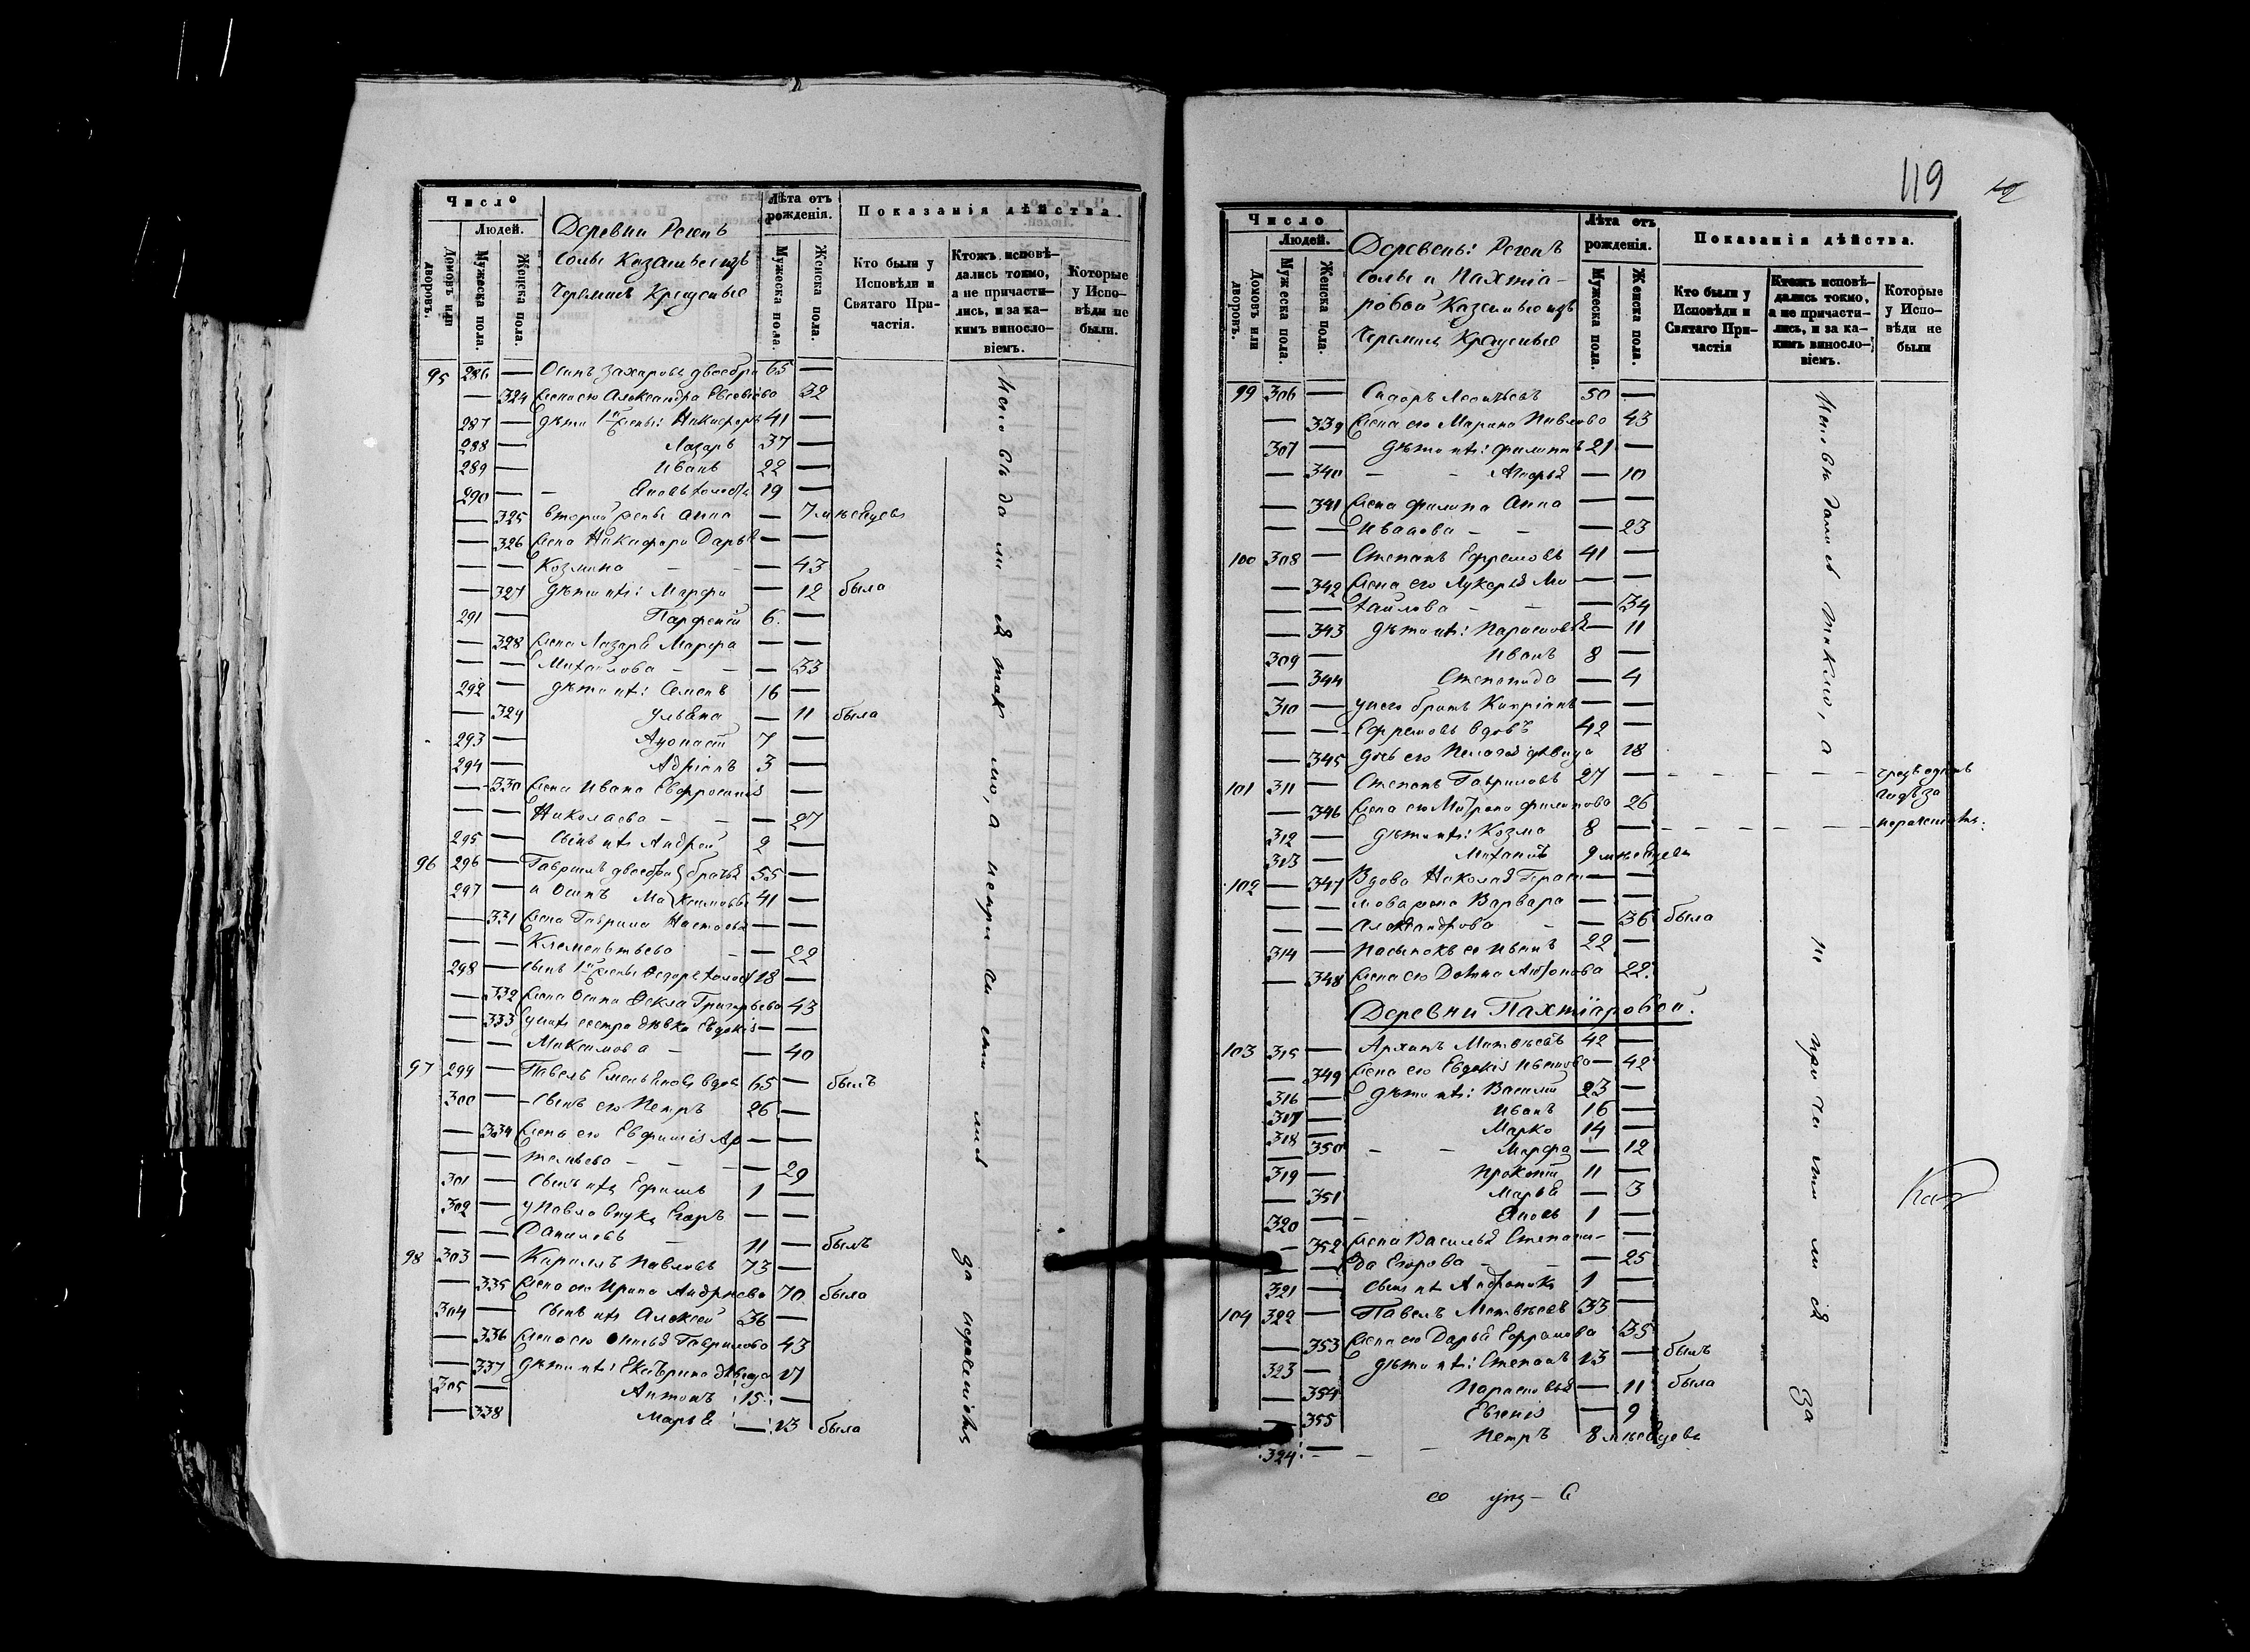 Число
Людей.
Домовъ или дворовъ.
Мужеска пола.
Женска пола.
Деревни
Казенные изъ
Черемисъ Крещеные
Лѣта отъ рожденія.
Мужеска пола.
Женска пола.
Показанія дѣйства.
Кто были у Исповѣди и Святаго Причастія.
Ктожъ исповѣдались токмо, а не причастились, и за какимъ винословіемъ.
Которые у Исповѣди не были.
95 286 — Осипъ Захаровъ двоебра 65 —
— 324 Жена его Александра 32
287 — Дѣти 1й жены: Никифоръ 41 —
288 — Лазарь 37 —
289 — Иванъ 22 —
290 — — Яковъ холостъ 19 —
— 325 второй жены Анна — 7 мѣсяцевъ
— 326 Жена Никифора Дарья — —
— — Козмина — — — 43
— 327 дѣти ихъ: Марфа — 12 была
291 — Парфеній 6 —
— 328 Жена Лазаря Марфа — —
— — Михайлова — — — 33
292 — дѣти ихъ: Семенъ 16 —
— 329 Ульяна — 11 была
293 — 7 —
294 — Адріанъ 3 —
— 330 Жена Ивана Евфросинія — —
— — Николаева — — — 27
295 — Сынъ ихъ Андрей 2 —
96 296 — Гавріилъ двоебра братья 55 —
297 — и Осипъ Максимовы 41 —
— 331 Жена Гаврила Настасья — —
— — Клементьева — — 22
298 — Сынъ 1й жены Ѳедоръ холост 18 —
— 332 Жена Осипа Ѳекла Григорьева 43
— 333 у нихъ сестра дѣвка Евдокія — —
— — Максимова — — 40
97 299 — Павелъ Емельяновъ вдов 65 — былъ
300 — Сынъ его Петръ 26 —
— 334 Жена его Евфимія Ар — —
— — темьева — — — 29
301 — Сынъ ихъ Ефимъ 1 —
302 — у Павла внукъ Егоръ — —
— — Даниловъ — 11 — былъ
98 303 — Кириллъ Павловъ 73 —
— 335 Жена его Ирина Андреева 70 была
304 — Сынъ ихъ Алексей 36 —
— 336 Жена его Гаврилова 43
— 337 дѣти ихъ: Екатерина дѣвица 17
305 — Антонъ 15 —
— 338 Марья — 13 была
Исповѣдались токмо, а непричастились за нераченіемъ
119
Число
Людей.
Домовъ или дворовъ.
Мужеска пола.
Женска пола.
Деревень:
и Пахтіа-
ровой Казенные изъ
Черемисъ Крещеные
Лѣта отъ рожденія.
Мужеска пола.
Женска пола.
Показанія дѣйства.
Кто были у Исповѣди и Святаго Причастія
Ктожъ исповѣдались токмо, а не причастились, и за какимъ винословіемъ.
Которые у Исповѣди не были
99 306 — Сидоръ 50 —
— 339 Жена его Марина Павлова 43
307 — дѣти ихъ: Филиппъ 21 —
— 340 — — — 10
— 341 Жена Филипа Анна — —
— — Иванова — — — 23
100 308 — Степанъ Ефремовъ 41 —
— 342 Жена его Лукерья Ми — —
— — хайлова — — — 34
— 343 дѣти ихъ: Парасковья — 11
309 — Иванъ 8 —
— 344 Степанида — 4
310 — у него братъ Кипріянъ — —
— — Ефремовъ вдовъ 42 —
— 345 дочь его Пелагея дѣвица 18
101 311 — Степанъ Гавриловъ 27 — — — — — — чрезъ одинъ
годъ за
— 346 Жена его Матрена Филипова 26
312 — дѣти ихъ: Козма 8 — — — — — — нераченіемъ.
313 — Михаилъ 9 мѣсяцевъ
102 — 347 Вдова Николая Гераси — —
— — мова жена Варвара — —
— — Александрова — — 36 была
314 — Пасынокъ ее Иванъ 22 —
— 348 Жена его Домна Антонова 22
Деревни Пахтіаровой.
103 315 — Архипъ Матвѣевъ 42 —
— 349 Жена его Евдокія Иванова — 42
316 — дѣти ихъ: Василій 23 —
317 — Иванъ 16 —
318 — Марко 14 —
— 350 — — Марфа — 12
319 — Прокопій 11 —
— 351 Марья — 3
320 — — Яковъ 1 —
— 352 Жена Василья Степани-
— — да Егорова — — — 25
321 — Сынъ их Андроникъ 1 —
104 322 — Павелъ Матвѣевъ 33 —
— 353 Жена его Дарья Ефремова 35
323 — дѣти ихъ: Степанъ 13 — былъ
— 354 Парасковья — 11 была
— 355 Евгенія — 9
324 — — — — Петръ 8 мѣсяцевъ
Исповѣдались токмо, а не причастились за